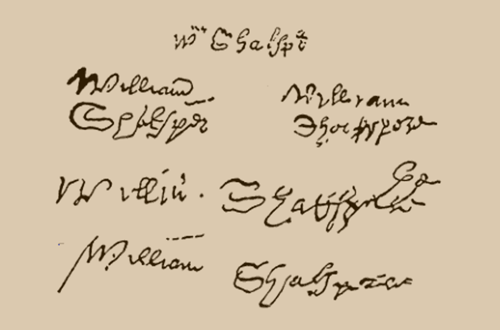 Wm Shakspe
William
Shaksper
William
Shakspere
Willm Shakspere
William Shakspeare